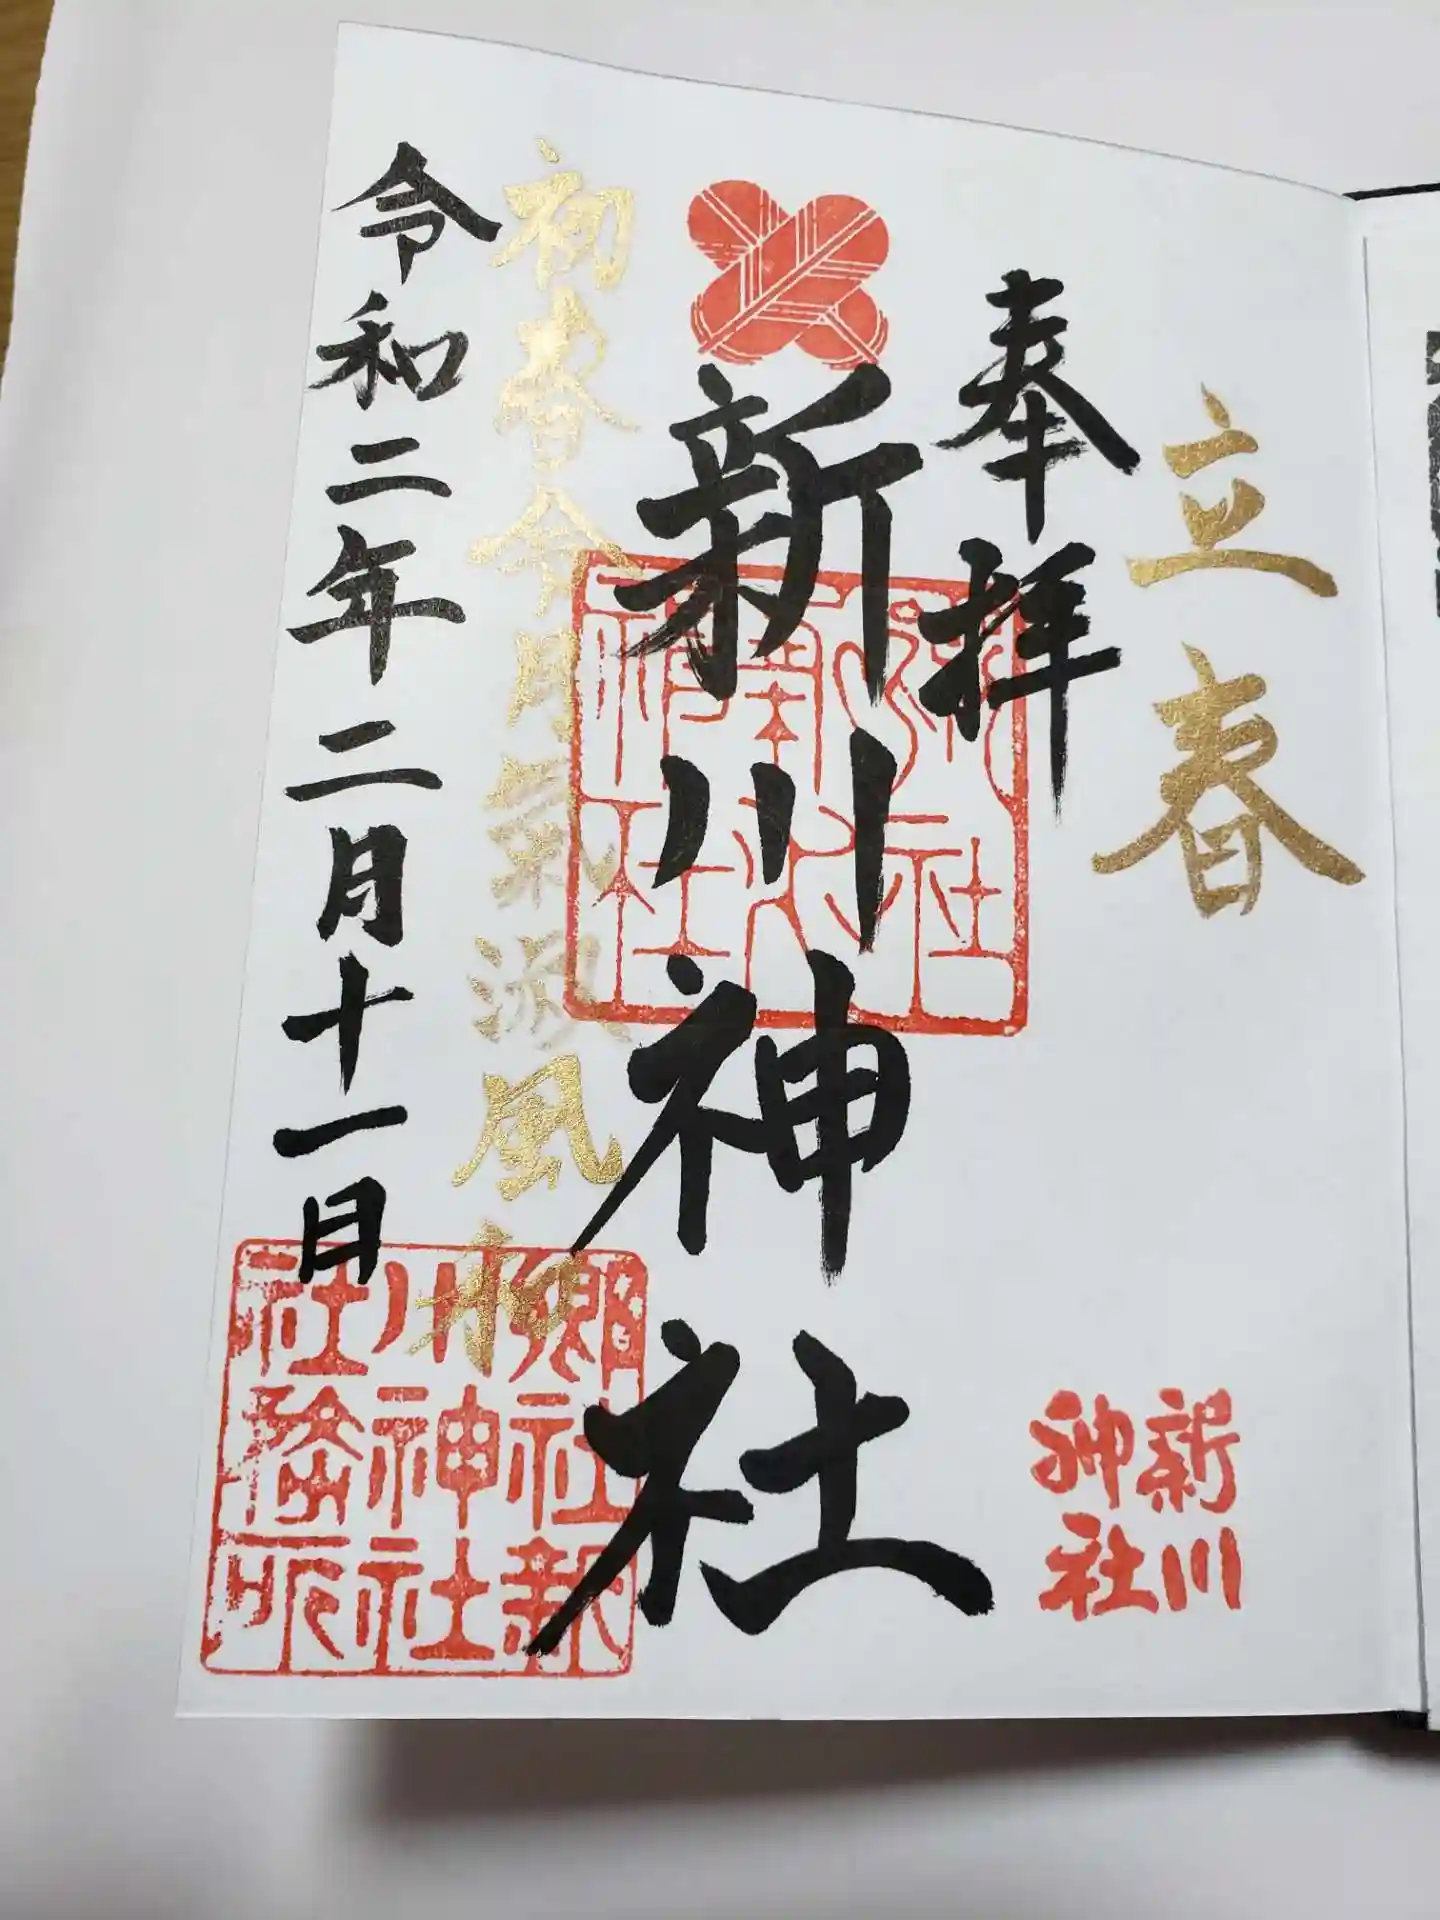 立春
奉拝
新川神社
初春令月氣淑風和
令和二年二月十一日
新川
神社
郷社新
川神社
社務所